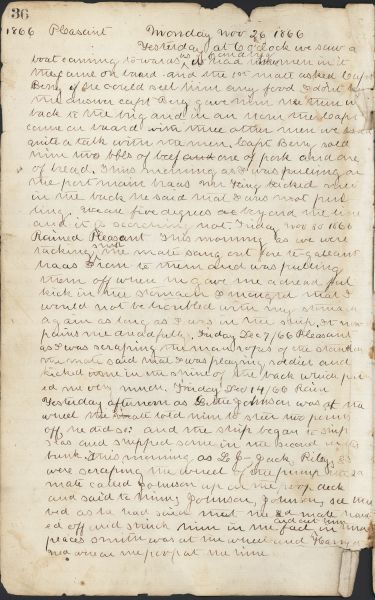 36
1866 Pleasant Monday Nov 26 1866
Yesterday at 6 o'clock we saw a
boat coming towards us it had men in it
they came on board and the 1st mate asked Capt
Berry if he could sell him any food I dont
the answer Capt Berry gave him he then
back to the brig and in an hour the Capt
came on board with three other men we had
quite a talk with the men. Capt Berry sold
him two bbls of beef one of pork and one
of bread. This morning as I was pulling on
the port main braces Mr King kicked me
in the back he said that I was not pul
ling. we are five degrees the line
and it is scorching hot. Friday Nov 30 1866
Rained Pleasant This morning as we were
tacking the mate sang out fore to gallant
braces I ran to them and was pulling
them off when he gave me a dreadful
kick in the stomach I thought that I
would not be troubled with my stomach
again as long as I was in the ship. it now
pains me dreadfully. Friday Dec 7/66 Pleasant
as I was scraping the man ropes of the
the mate said that I was playing soldier and
kicked me in the spine of the back which pain
ed me very much. Friday Dec 14/66 Rain
Yesterday afternoon as Johnson was at the
wheel the mate told him to steer
off, he did so: and the ship began to ship
seas and shipped some in the second mates
bunk. This morning as Jack, Riley &
were scraping the wheel of the pump the
mate called Johnson up on the poop deck
and said to him, Johnson, Johnson, see
as he had said that the 2d mate haul
ed off and struck him in the face and cut him in
places Smith was at the wheel and Harry
was on the poop at the time